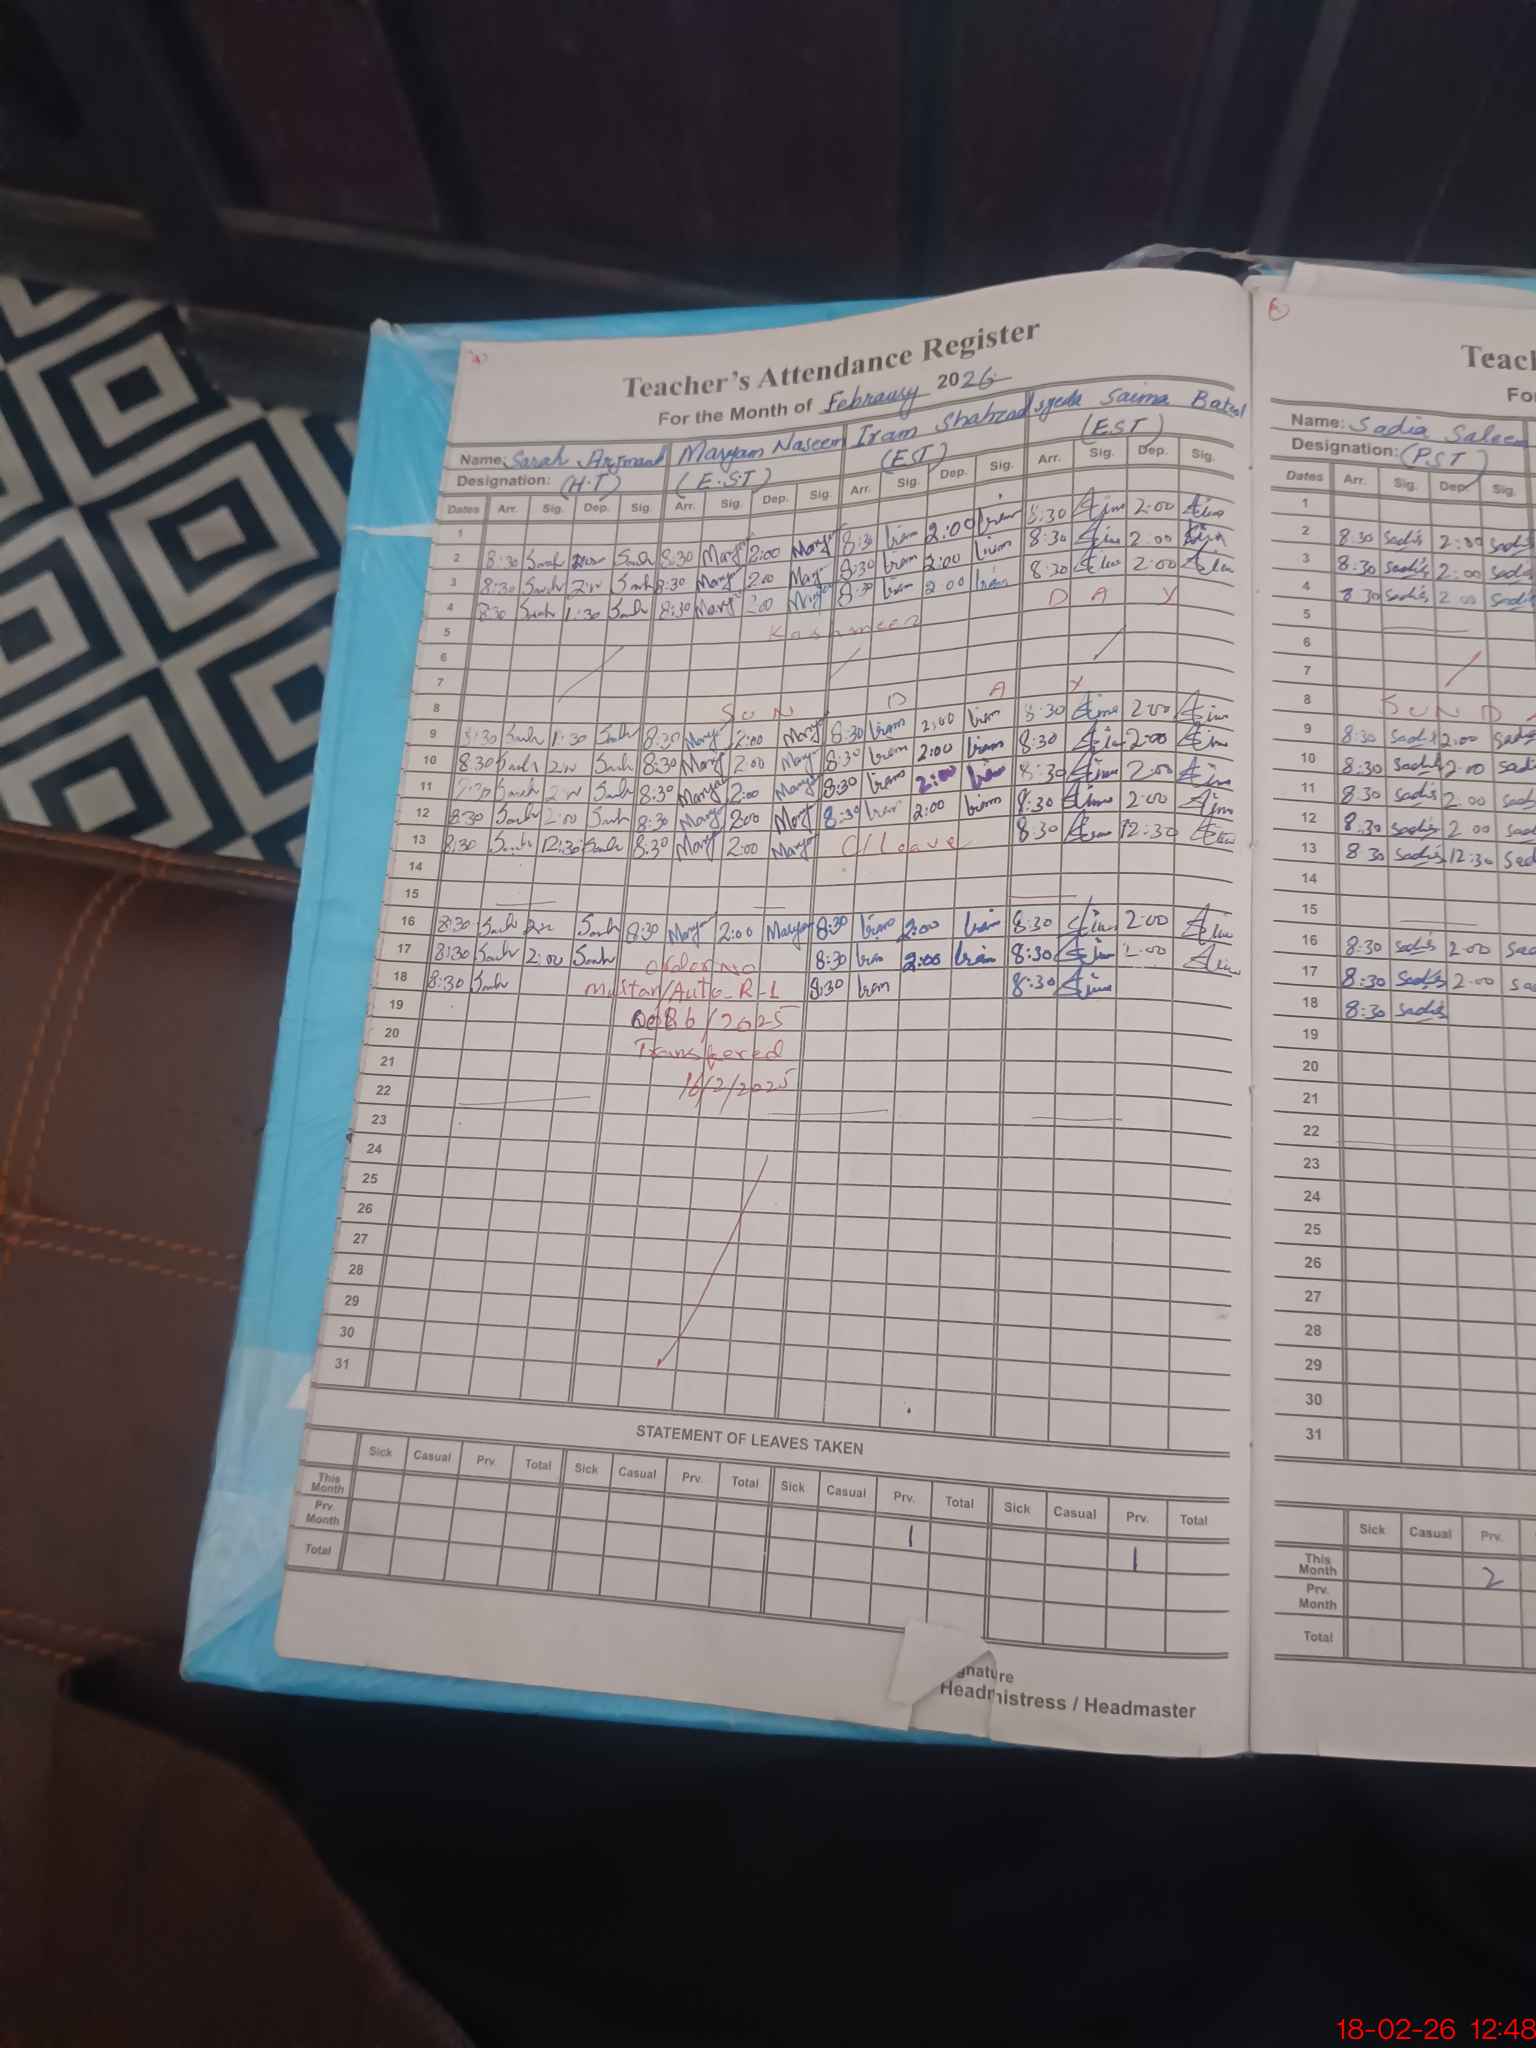 Teacher's Attendance Register
For the Month of February 2026
Name: Sarah Arjmand Maryam Naseem Iram Shahzad Syeda Saima Batool
Designation: (H.T) (E.S.T) (EST) (EST)
Dates Arr. Sig. Dep. Sig. Arr. Sig. Dep. Sig. Arr. Sig. Dep. Sig. Arr. Sig. Dep. Sig.
1
2 8:30 Sarah 2:00 Sarah 8:30 Marya 2:00 Marya 8:30 Iram 2:00 Iram 8:30 2:00
3 8:30 Sarah 2:00 Sarah 8:30 Marya 2:00 Marya 8:30 Iram 2:00 Iram 8:30 2:00
4 8:30 Sarah 1:30 Sarah 8:30 Marya 2:00 Marya 8:30 Iram 2:00 Iram 8:30 2:00
5 Kashmeer DAY
6
7
8 SUN DAY
9 8:30 Sarah 1:30 Sarah 8:30 Marya 2:00 Marya 8:30 Iram 2:00 Iram 8:30 2:00
10 8:30 Sarah 2:00 Sarah 8:30 Marya 2:00 Marya 8:30 Iram 2:00 Iram 8:30 2:00
11 8:30 Sarah 2:00 Sarah 8:30 Marya 2:00 Marya 8:30 Iram 2:00 Iram 8:30 2:00
12 8:30 Sarah 2:00 Sarah 8:30 Marya 2:00 Marya 8:30 Iram 2:00 Iram 8:30 2:00
13 8:30 Sarah 12:30 Sarah 8:30 Marya 2:00 Marya C/Leave 8:30 12:30
14
15
16 8:30 Sarah 2:00 Sarah 8:30 Marya 2:00 Maryam 8:30 Iram 2:00 Iram 8:30 2:00
17 8:30 Sarah 2:00 Sarah Order No 8:30 Iram 2:00 Iram 8:30 2:00
18 8:30 Sarah Multan/Auto-R-1 8:30 Iram 8:30
19 /2025
20 Transfered
21 16/2/2025
22
23
24
25
26
27
28
29
30
31
STATEMENT OF LEAVES TAKEN
Sick Casual Prv. Total Sick Casual Prv. Total Sick Casual Prv. Total Sick Casual Prv. Total
This Month 1 1
Prv. Month
Total
gnature
Headmistress / Headmaster
Teac
Fo
Name: Sadia Saleem
Designation: (P.S.T)
Dates Arr. Sig. Dep. Sig.
1
2 8:30 Sadis 2:00 Sadis
3 8:30 Sadis 2:00 Sadis
4 8:30 Sadis 2:00 Sadis
5
6
7
8 SUND
9 8:30 Sadis 2:00 Sadis
10 8:30 Sadis 2:00 Sadi
11 8:30 Sadis 2:00 Sad
12 8:30 Sadis 2:00 Sad
13 8:30 Sadis 12:30 Sad
14
15
16 8:30 Sadis 2:00 Sad
17 8:30 Sadis 2:00 Sa
18 8:30 Sadis
19
20
21
22
23
24
25
26
27
28
29
30
31
Sick Casual Prv.
This Month 2
Prv. Month
Total
18-02-26 12:48